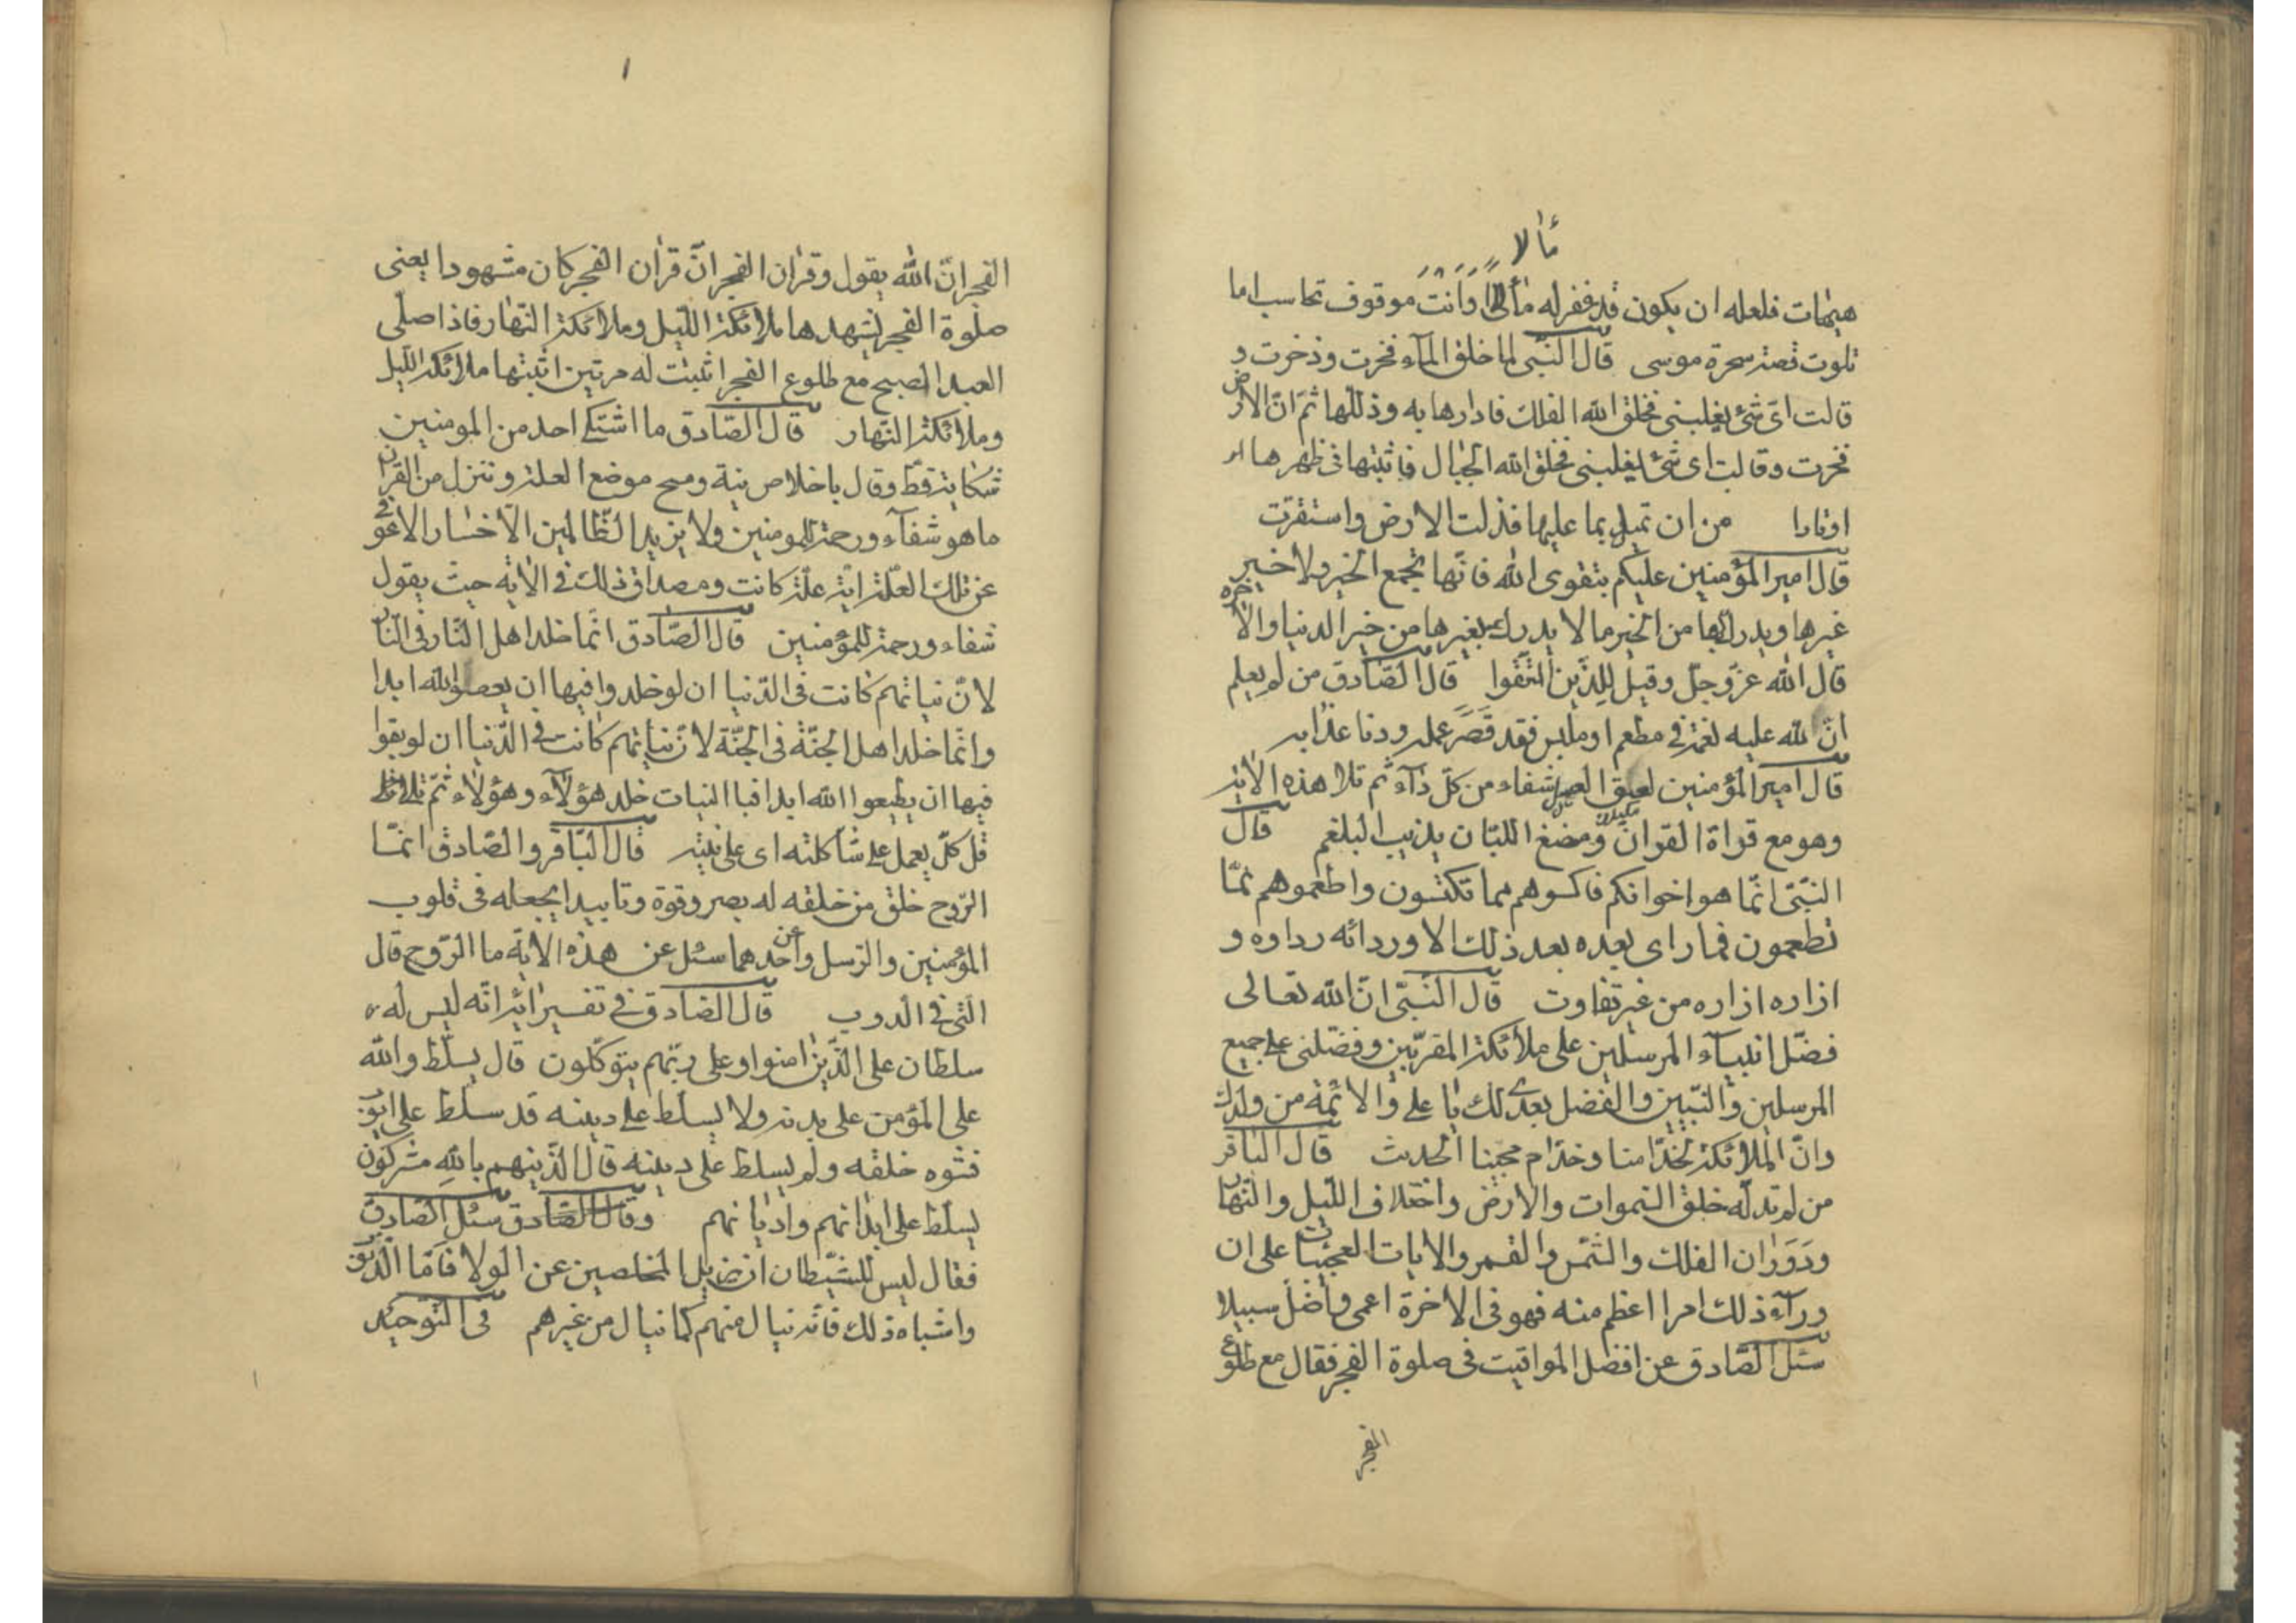 مألا
هيهات فلعله ان يكون قد غفر له ما أتى وانت موقوف تحاسب اما
تلوت قصة سحرة موسى قال النبى لما خلق المآء فخرت وذخرت و
قالت اىّ شئ يغلبنى فخلق الله الفلك فادارها به وذللها ثمّ انّ الارض
فخرت وقالت اى شئ يغلبنى فخلق الله الجبال فاثبتها فى ظهرها
اوتادا من ان تميل بما عليها فذلت الارض واستقرت
قال امير المؤمنين عليكم بتقوى الله فانّها تجمع الخير ولا خير
غيرها ويدرك بها من الخير ما لا يدرك بغيرها من خير الدنيا والآخرة
قال الله عزّ وجلّ وقيل للذين اتّقوا قال الصّادق من لم يعلم
انّ لله عليه نعمة فى مطعم او ملبس فقد قصّر عمله ودنا عذابه
قال امير المؤمنين لعق العسل شفاء من كلّ دآء ثم تلا هذه الاية
وهو مع قراة القران ومضغ اللبان يذيب البلغم قال
النبّى انّما هو اخوانكم فاكسوهم مما تكتسون واطعموهم ممّا
تطعمون فما راى بعده بعد ذلك الا وردائه رداوه و
ازاره ازاره من غير تفاوت قال النبّى انّ الله تعالى
فضّل انبيآء المرسلين على ملائكة المقرّبين وفضّلنى على جميع
المرسلين والنّبيين والفضل بعدى لك يا على والائمّة من ولدك
وانّ الملائكة لخدّامنا وخدّام محبينا الحديث قال الباقر
من لم تدلّه خلق السموات والارض واختلاف اللّيل والنهار
ودَوَران الفلك والشّمس والقمر والايات العجيبات على ان
ورآء ذلك امرا اعظم منه فهو فى الاخرة اعمى واضلّ سبيلا
سئل الصّادق عن افضل المواقيت فى صلوة الفجر فقال مع طلوع
الفجر
الفجر انّ الله يقول وقران الفجر انّ قران الفجر كان مشهودا يعنى
صلوة الفجر يشهدها ملائكة اللّيل وملائكة النّهار فاذا صلّى
العبد الصبح مع طلوع الفجر اثبت له مرتين اثبتها ملائكة اللّيل
وملائكة النّهار قال الصّادق ما اشتكى احد من المومنين
شكاية قطّ وقال باخلاص نية ومسح موضع العلة وننزل من القران
ما هو شفآء ورحمة للمومنين ولا يزيد الظّالمين الّا خسارا الا عوفى
عن تلك العلّة ايّة علّة كانت ومصداق ذلك فى الاية حيث يقول
شفاء ورحمة للمؤمنين قال الصّادق انّما خلد اهل النّار فى النّار
لانّ نياتهم كانت فى الدّنيا ان لو خلدوا فيها ان يعصوا الله ابدا
وانّما خلد اهل الجنّة فى الجنّة لانّ نياتهم كانت فى الدّنيا ان لو بقوا
فيها ان يطيعوا الله ابدا فبا النيات خلد هؤلآء وهؤلاء ثمّ تلا
قل كلّ يعمل على شاكلته اى على نيّته قال البّاقر والصّادق انمّا
الرّوح خلق من خلقه له بصر وقوة وتاييد يجعله فى قلوب
المؤمنين والرّسل وعن احدهما سئل عن هذه الاية ما الرّوح قال
التى فى الدوب قال الصّادق فى تفسير اية انّه ليس له
سلطان على الذّين امنوا وعلى ربّهم يتوكّلون قال يسلّط والله
على المؤمن على بدنه ولا يسلّط على دينه قد سلّط على ايّوب
فشوه خلقه ولم يسلط على دينه قال الذّين هم بالله مشركون
يسلّط على ابدانهم واديانهم وقال الصّادق سئل الصّادق
فقال ليس للشّيطان ان يزيل المخلصين عن الولا فامّا الذّنوب
واشباه ذلك فانّه ينال منهم كما ينال من غيرهم فى التّوحيد